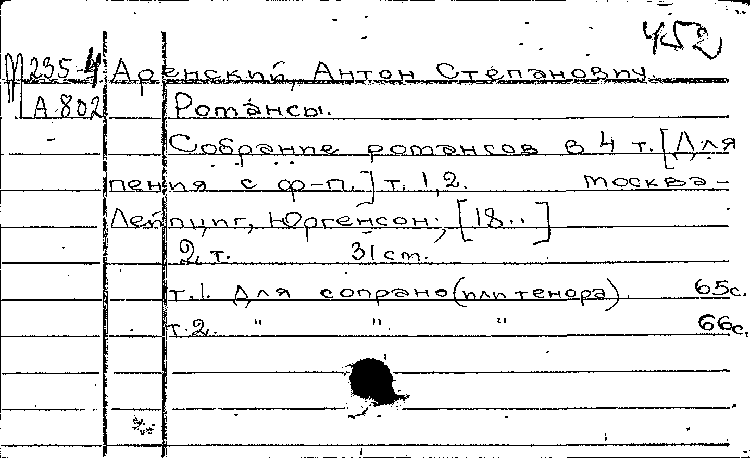 452
М235-4 Аренский, Антон Степанович
А-802 Романсы.
Собрание романсов в 4 т. [Для
пения с ф-п.] т. 1,2. Москва-
Лейпциг, Юргенсон, [18..]
2 т. 31 cm.
т.1. Для сопрано (или тенора) 65с.
т.2. " " " 66с.